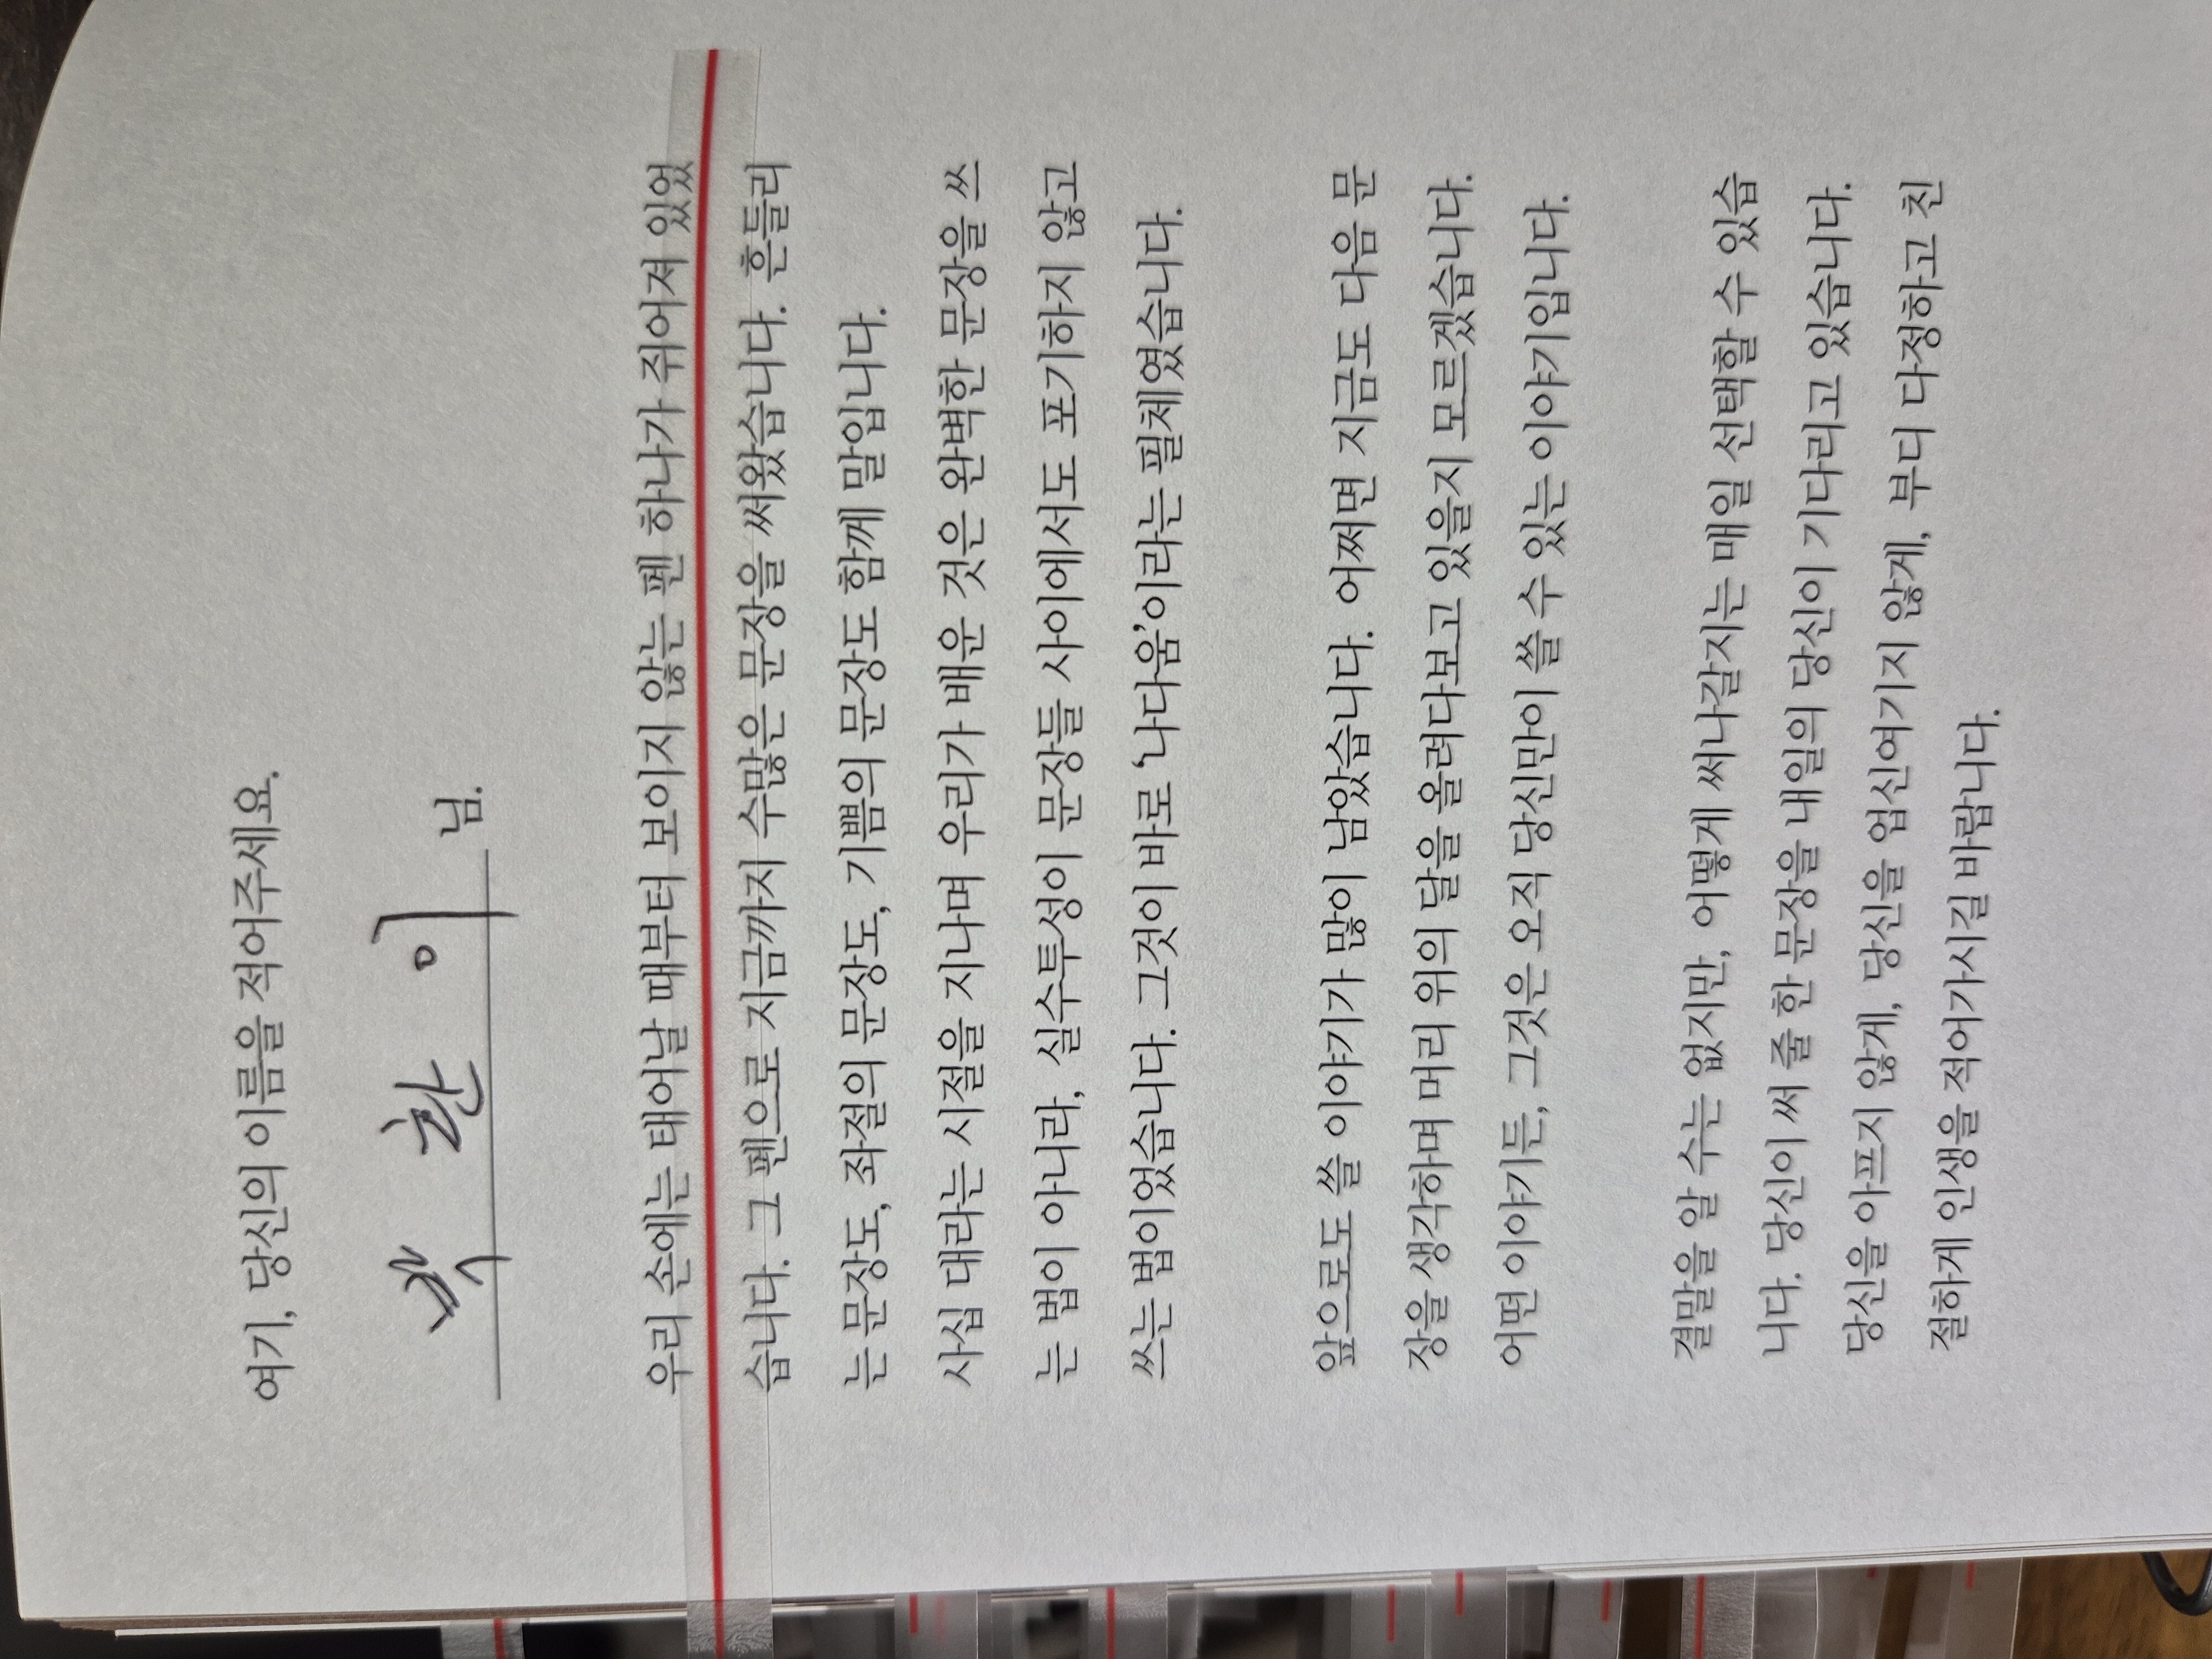 여기, 당신의 이름을 적어주세요.
박 찬 이 님.
우리 손에는 태어날 때부터 보이지 않는 펜 하나가 쥐어져 있었
습니다. 그 펜으로 지금까지 수많은 문장을 써왔습니다. 흔들리
는 문장도, 좌절의 문장도, 기쁨의 문장도 함께 말입니다.
사십 대라는 시절을 지나며 우리가 배운 것은 완벽한 문장을 쓰
는 법이 아니라, 실수투성이 문장들 사이에서도 포기하지 않고
쓰는 법이었습니다. 그것이 바로 ‘나다움’이라는 필체였습니다.
앞으로도 쓸 이야기가 많이 남았습니다. 어쩌면 지금도 다음 문
장을 생각하며 머리 위의 달을 올려다보고 있을지 모르겠습니다.
어떤 이야기든, 그것은 오직 당신만이 쓸 수 있는 이야기입니다.
결말을 알 수는 없지만, 어떻게 써나갈지는 매일 선택할 수 있습
니다. 당신이 써 줄 한 문장을 내일의 당신이 기다리고 있습니다.
당신을 아프지 않게, 당신을 업신여기지 않게, 부디 다정하고 친
절하게 인생을 적어가시길 바랍니다.